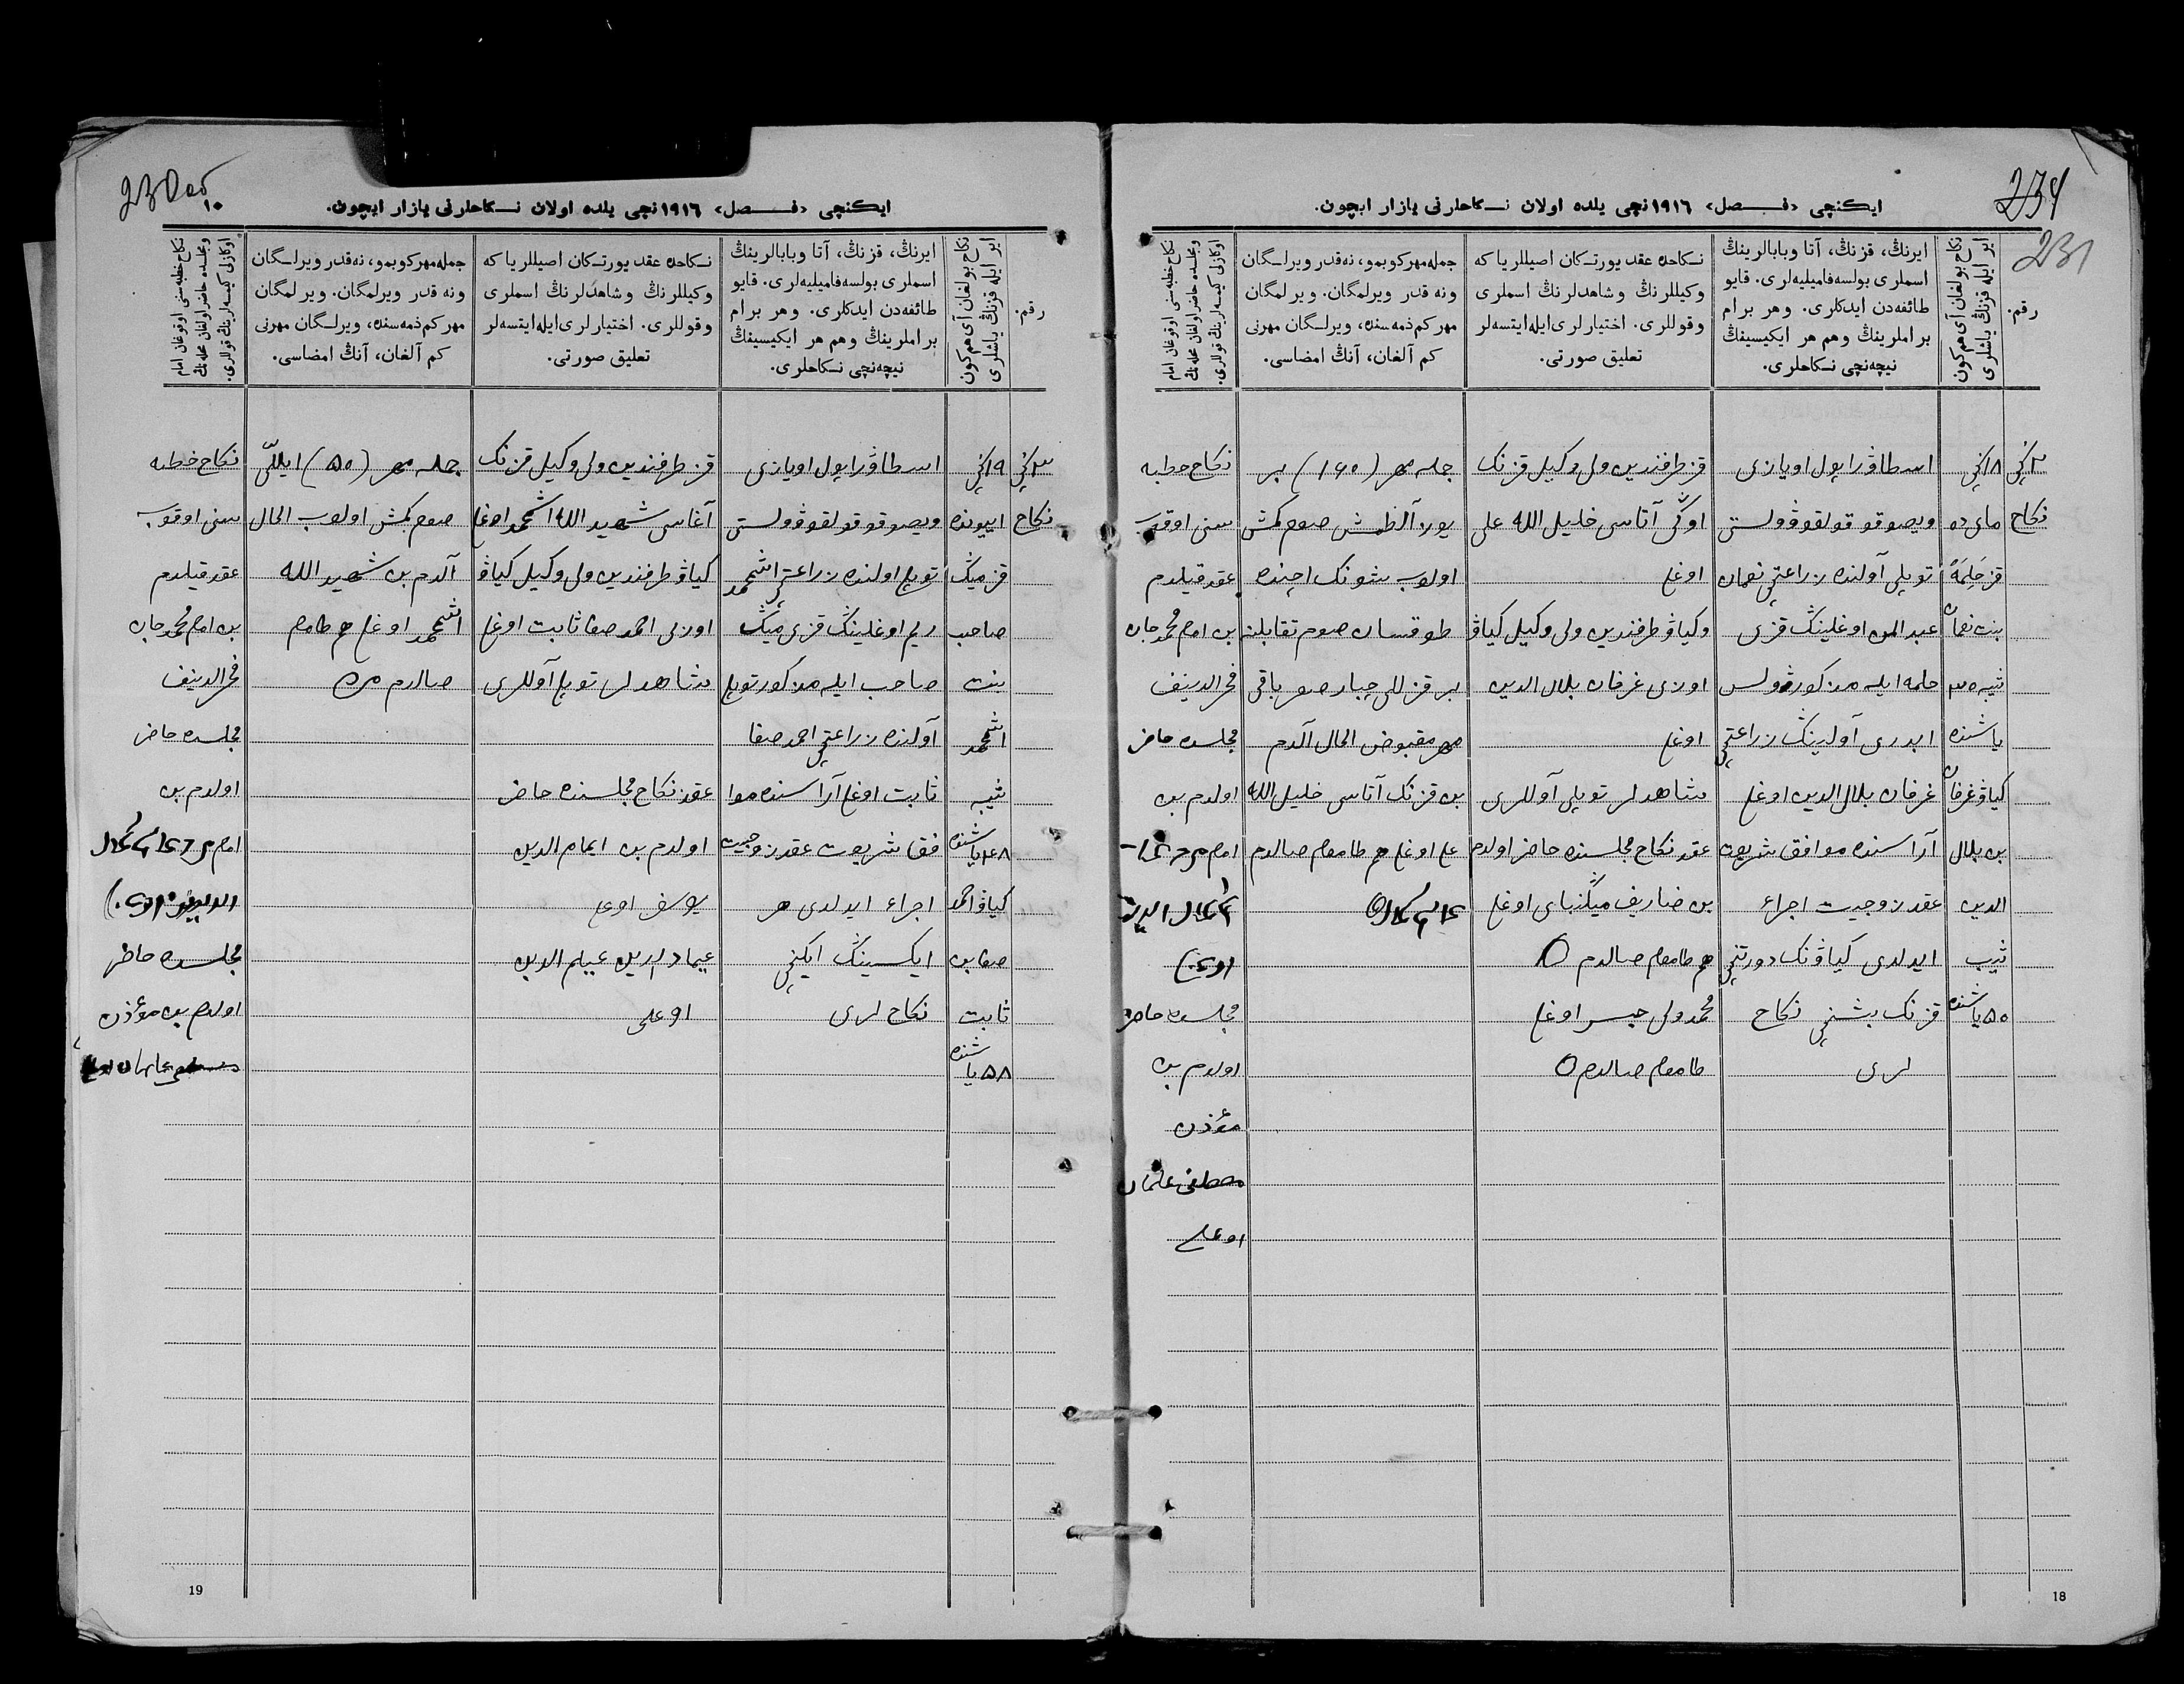 234
231
ایكنچی «فـصل» ١٩١٦نچی یلده اولان نـكاحلرنی یازار ایچون.
رقم.
نكاح بولغان آی هم كون
ایر ایله قزنڭ یاشلری
ایرنڭ، قزنڭ، آتا وبابالرینڭ
اسملری بولسه فامیلیه‌لری. قایو
طائفه‌دن ایدكلری. وهر برام
براملرینڭ وهم هر ایكیسینڭ
نیچه‌نچی نـكاحلری.
نـكاحده عقد یورتـكان اصیللر یا كه
وكیللرنڭ وشاهدلرنڭ اسملری
وقوللری. اختیارلری ایله ایتسه‌لر
تعلیق صورتی.
جمله مهر كوبمو، نه‌قدر ویراـگان
ونه قدر ویرلمگان. ویرلمگان
مهر كم ذمه سنده، ویرلـگان مهرنی
كم آلغان، آنڭ امضاسی.
نكاح خطبه‌سنی اوقوغان امام
ومجلسده حاضر اولغان محله‌نڭ
اوكازلی كیسه‌لرینڭ قوللری.
نكاح
١٨نچی
مای ده
قز حلیمة
بنت نعمان
ثیبه ٣٥
یاشنده
كیاو غرفان
بن بلال
الدین
ثیب
٥٥ یاشنده
اسطاورا پول اویازی
ویصوقو قولقوۋ ولستی
توپلی آولنده زراعتچی نعمان
عبدالمن اوغلینڭ قزی
حلمه ایله مذكور ۋولس
ایدری آولینڭ زراعتچی
غرفان بلال الدین اوغلی
آراسنده موافق شریعت
عقد زوجیت اجراء
ایدلدی كیاونڭ دورتنچی
قزنڭ بشنچی نكاح
لری
قز طرفندین ولی وكیل قزنڭ
اوگی آتاسی خلیل الله علی
اوغلی
وكیاو طرفندین ولی وكیل كیاو
اوزی غرفان بلال الدین
اوغلی
شاهدلر توپلی آوللری
عقد نكاح مجلسنده حاضر اولدم
بن ضاریف میڭنبای اوغلی
هم طامغام صالدم
محمد ولی اوغلی
طامغام صالدم
جمله مهر (١٦٥) بر
یوز آلطمش صوم كمش
اولوب شونڭ اچنده
طوقسان صوم تقابلنه
بر قزللی چبار صغر باقی
مهر مقبوض الحال آلدم
بن قزنڭ آتاسی خلیل الله
علی اوغلی هم طامغام صالدم
نكاح خطبه
سنی اوقوب
عقد قیلدم
بن امام محمد جان
فخرالدینف
مجلسده حاضر
اولدم بن
مجلسده حاضر
اولدم بن
مؤذن
مصطفی عثمان
اوغلی
18
ایكنچی «فـصل» ١٩١٦نچی یلده اولان نـكاحلرنی یازار ایچون.
١٠
رقم.
نكاح بولغان آی هم كون
ایر ایله قزنڭ یاشلری
ایرنڭ، قزنڭ، آتا وبابالرینڭ
اسملری بولسه فامیلیه‌لری. قایو
طائفه‌دن ایدكلری. وهر برام
براملرینڭ وهم هر ایكیسینڭ
نیچه‌نچی نـكاحلری.
نـكاحده عقد یورتـكان اصیللر یا كه
وكیللرنڭ وشاهدلرنڭ اسملری
وقوللری. اختیارلری ایله ایتسه‌لر
تعلیق صورتی.
جمله مهر كوبمو، نه‌قدر ویراـگان
ونه قدر ویرلمگان. ویرلمگان
مهر كم ذمه سنده، ویرلـگان مهرنی
كم آلغان، آنڭ امضاسی.
نكاح خطبه‌سنی اوقوغان امام
ومجلسده حاضر اولغان محله‌نڭ
اوكازلی كیسه‌لرینڭ قوللری.
٣نچی
نكاح
١٩نچی
اییونده
قز میڭ
صاحب
بنت
اشمحمد
ثیبه
٤٨ یاشنده
كیاو احمد
صفا بن
ثابت
٥٨ یاشنده
اسطاورا پول اویازی
ویصوقو قولقوۋ ولستی
توپلی اولنده زراعتچی اشمحمد
ریم اوغلینڭ قزی میڭ
صاحب ایله مذكور توپلی
آولنده زراعتچی احمد صفا
ثابت اوغلی آراسنده موا
فق شریعت عقد زوجیت
اجراء ایدلدی هر
ایكسینڭ ایكنچی
نكاح لری
قز طرفندین ولی وكیل قزنڭ
آغاسی شهید الله اشمحمد اوغلی
كیاو طرفندین ولی وكیل كیاو
اوزی احمد صفا ثابت اوغلی
شاهدلر توپلی آوللری
عقد نكاح مجلسنده حاضر
اولدم بن ایمام الدین
یوسف اوغلی
عیماد الدین علیم الدین
اوغلی
جمله مهر (٥٠) ایللی
صوم كمش اولوب الحال
آلدم بن شهید الله
اشمحمد اوغلی هم طامغام
صالدم
نكاح خطبه
سنی اوقوب
عقد قیلدم
بن امام محمد جان
فخرالدینف
مجلسده حاضر
اولدم بن
مجلسده حاضر
اولدم بن مؤذن
19